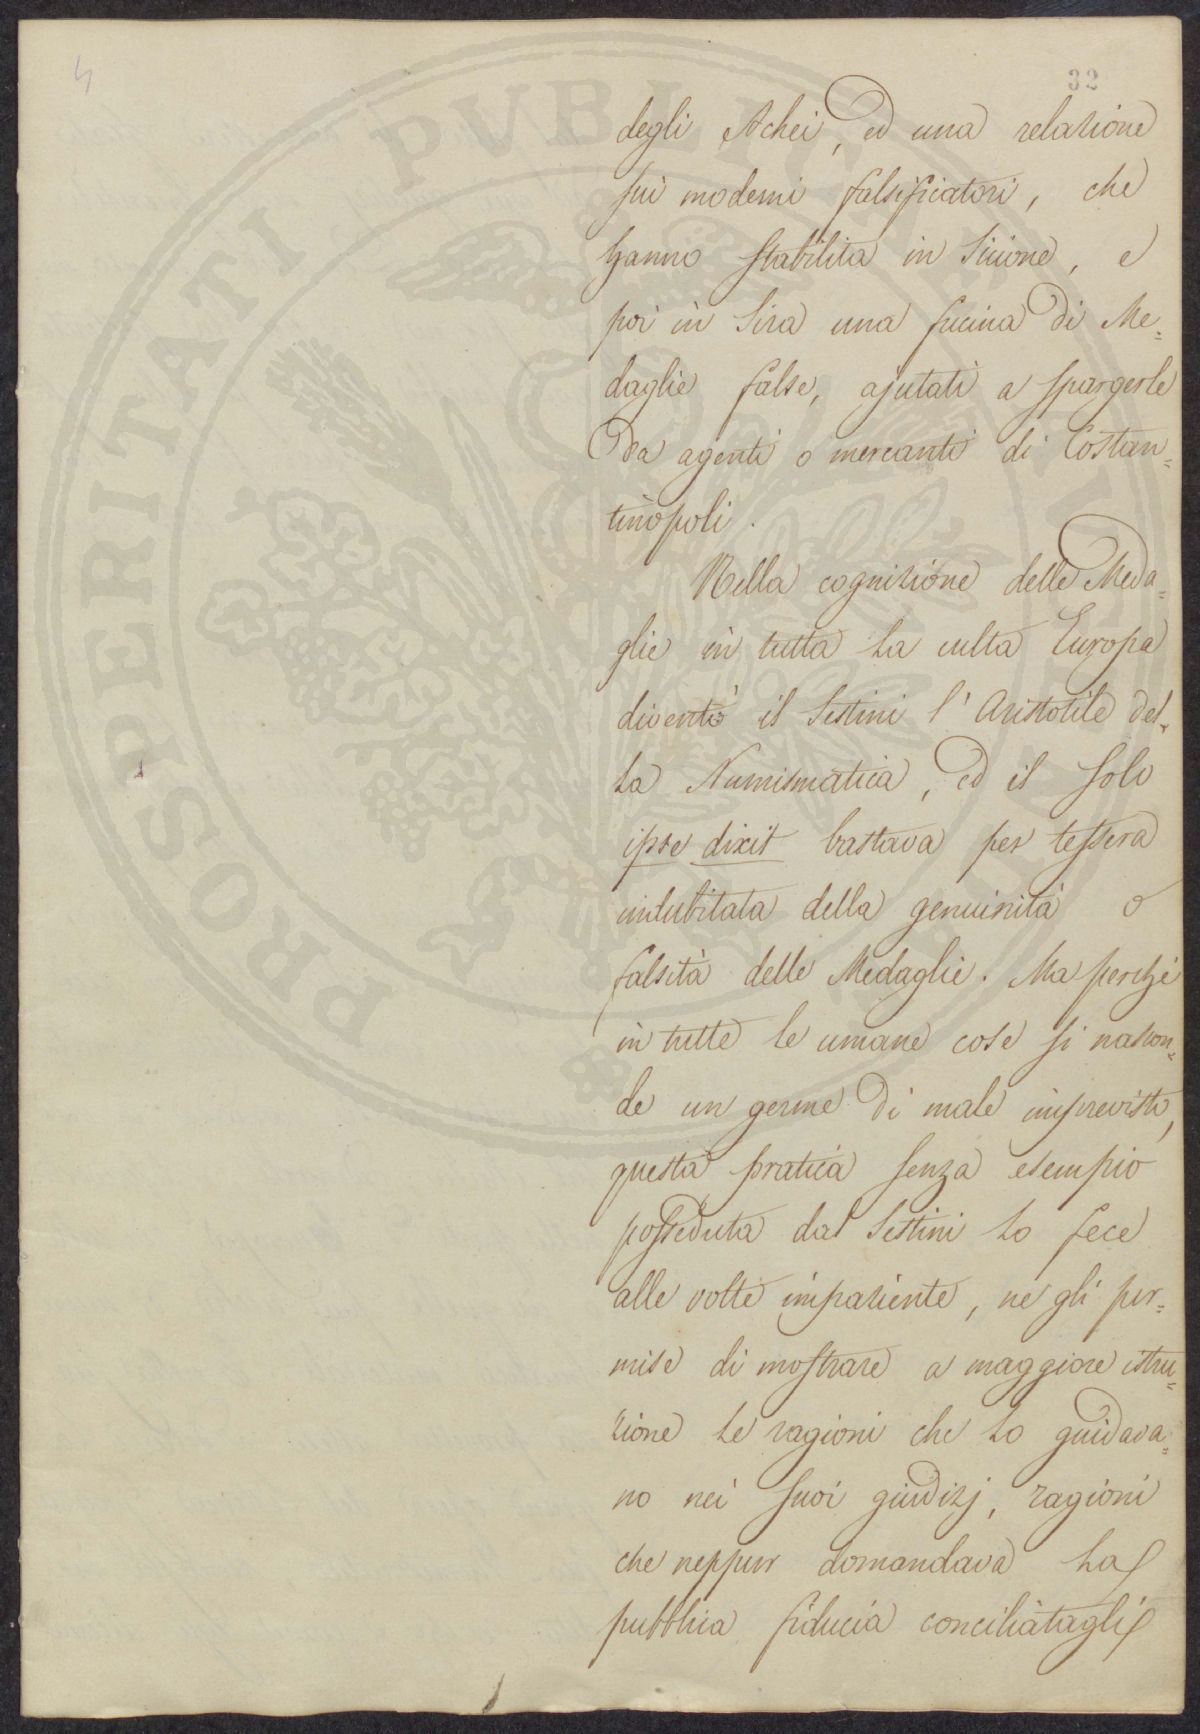 4
32
degli Achei, ed una relazione
sui moderni falsificatori, che
hanno stabilita in Sicione, e
poi in Sira una fucina di Me=
daglie false, ajutati a spargerle
da agenti o mercanti di Costan=
tinopoli.
Nella cognizione delle Meda=
glie in tutta la culta Europa
diventò il Sestini l'Aristotile del=
la Numismatica, ed il solo
ipse dixit bastava per tessera
indubitata della genuinità o
falsità delle Medaglie. Ma perchè
in tutte le umane cose si nascon=
de un germe di male imprevisto,
questa pratica senza esempio
posseduta dal Sestini lo fece
alle volte impaziente, ne gli per=
mise di mostrare a maggiore istru=
zione le ragioni che lo guidava=
no nei suoi giudizj, ragioni
che neppur domandava la
pubblica fiducia conciliatagli
PROSPERITATI PVBLICAE